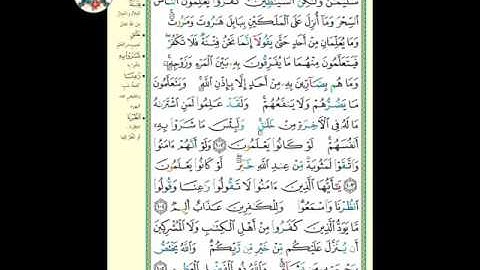 سُلَيْمَٰنُ وَلَٰكِنَّ ٱلشَّيَٰطِينَ كَفَرُوا۟ يُعَلِّمُونَ ٱلنَّاسَ
ٱلسِّحْرَ وَمَآ أُنزِلَ عَلَى ٱلْمَلَكَيْنِ بِبَابِلَ هَٰرُوتَ وَمَٰرُوتَ ۚ
وَمَا يُعَلِّمَانِ مِنْ أَحَدٍ حَتَّىٰ يَقُولَآ إِنَّمَا نَحْنُ فِتْنَةٌ فَلَا تَكْفُرْ ۖ
فَيَتَعَلَّمُونَ مِنْهُمَا مَا يُفَرِّقُونَ بِهِۦ بَيْنَ ٱلْمَرْءِ وَزَوْجِهِۦ ۚ
وَمَا هُم بِضَآرِّينَ بِهِۦ مِنْ أَحَدٍ إِلَّا بِإِذْنِ ٱللَّهِ ۚ وَيَتَعَلَّمُونَ
مَا يَضُرُّهُمْ وَلَا يَنفَعُهُمْ ۚ وَلَقَدْ عَلِمُوا۟ لَمَنِ ٱشْتَرَىٰهُ
مَا لَهُۥ فِى ٱلْءَاخِرَةِ مِنْ خَلَٰقٍ ۚ وَلَبِئْسَ مَا شَرَوْا۟ بِهِۦٓ
أَنفُسَهُمْ ۚ لَوْ كَانُوا۟ يَعْلَمُونَ ١٠٢ وَلَوْ أَنَّهُمْ ءَامَنُوا۟
وَٱتَّقَوْا۟ لَمَثُوبَةٌ مِّنْ عِندِ ٱللَّهِ خَيْرٌ ۖ لَّوْ كَانُوا۟ يَعْلَمُونَ
١٠٣ يَٰٓأَيُّهَا ٱلَّذِينَ ءَامَنُوا۟ لَا تَقُولُوا۟ رَٰعِنَا وَقُولُوا۟
ٱنظُرْنَا وَٱسْمَعُوا۟ ۗ وَلِلْكَٰفِرِينَ عَذَابٌ أَلِيمٌ ١٠٤
مَّا يَوَدُّ ٱلَّذِينَ كَفَرُوا۟ مِنْ أَهْلِ ٱلْكِتَٰبِ وَلَا ٱلْمُشْرِكِينَ
أَن يُنَزَّلَ عَلَيْكُم مِّنْ خَيْرٍ مِّن رَّبِّكُمْ ۗ وَٱللَّهُ يَخْتَصُّ
بِرَحْمَتِهِۦ مَن يَشَآءُ ۚ وَٱللَّهُ ذُو ٱلْفَضْلِ ٱلْعَظِيمِ